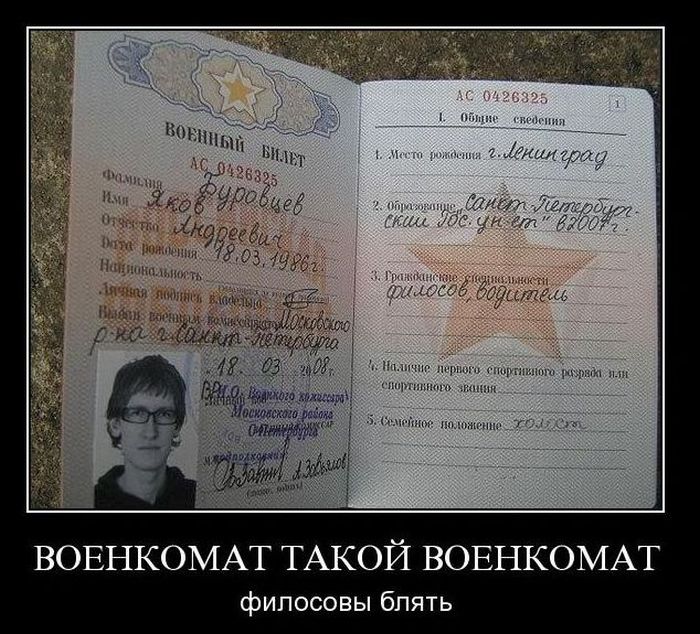 ВОЕННЫЙ БИЛЕТ
АС 0426325
Фамилия Буровцев
Имя Яков
Отчество Андреевич
Дата рождения 18.03.1986г.
Национальность
Личная подпись владельца
Выдан военным комиссариатом Московского
р-на г. Санкт-Петербурга
18. 03 2008г.
ВР.И.О. Военного комиссара
Московского района
С-Петербурга
подполковник
А.Завьялов
АС 0426325
1
I. Общие сведения
1. Место рождения г.Ленинград
2. Образование Санкт-Петербург-
ский Гос. ун-ет" в 2007г.
3. Гражданские специальности
филосов, водитель
4. Наличие первого спортивного разряда или
спортивного звания
5. Семейное положение холост
ВОЕНКОМАТ ТАКОЙ ВОЕНКОМАТ
филосовы блять